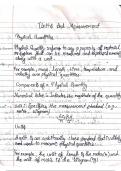 Units And Measurement
Physical Quantities
Physical Quantity refers to any property of material
or system that can be measured and expressed
along with a unit.
For example, mass, length, time, temperature and
velocity are physical quantities.
Components of a Physical Quantity
Numerical Value : Indicates the magnitude of the quantity
Unit : Specifies the measurement standard (e.g.
meters, kilograms).
Units
A unit is an
used to measure physical quantities.
For example, the unit of length is the meter(m) and
the unit of mass is the kilogram (kg)